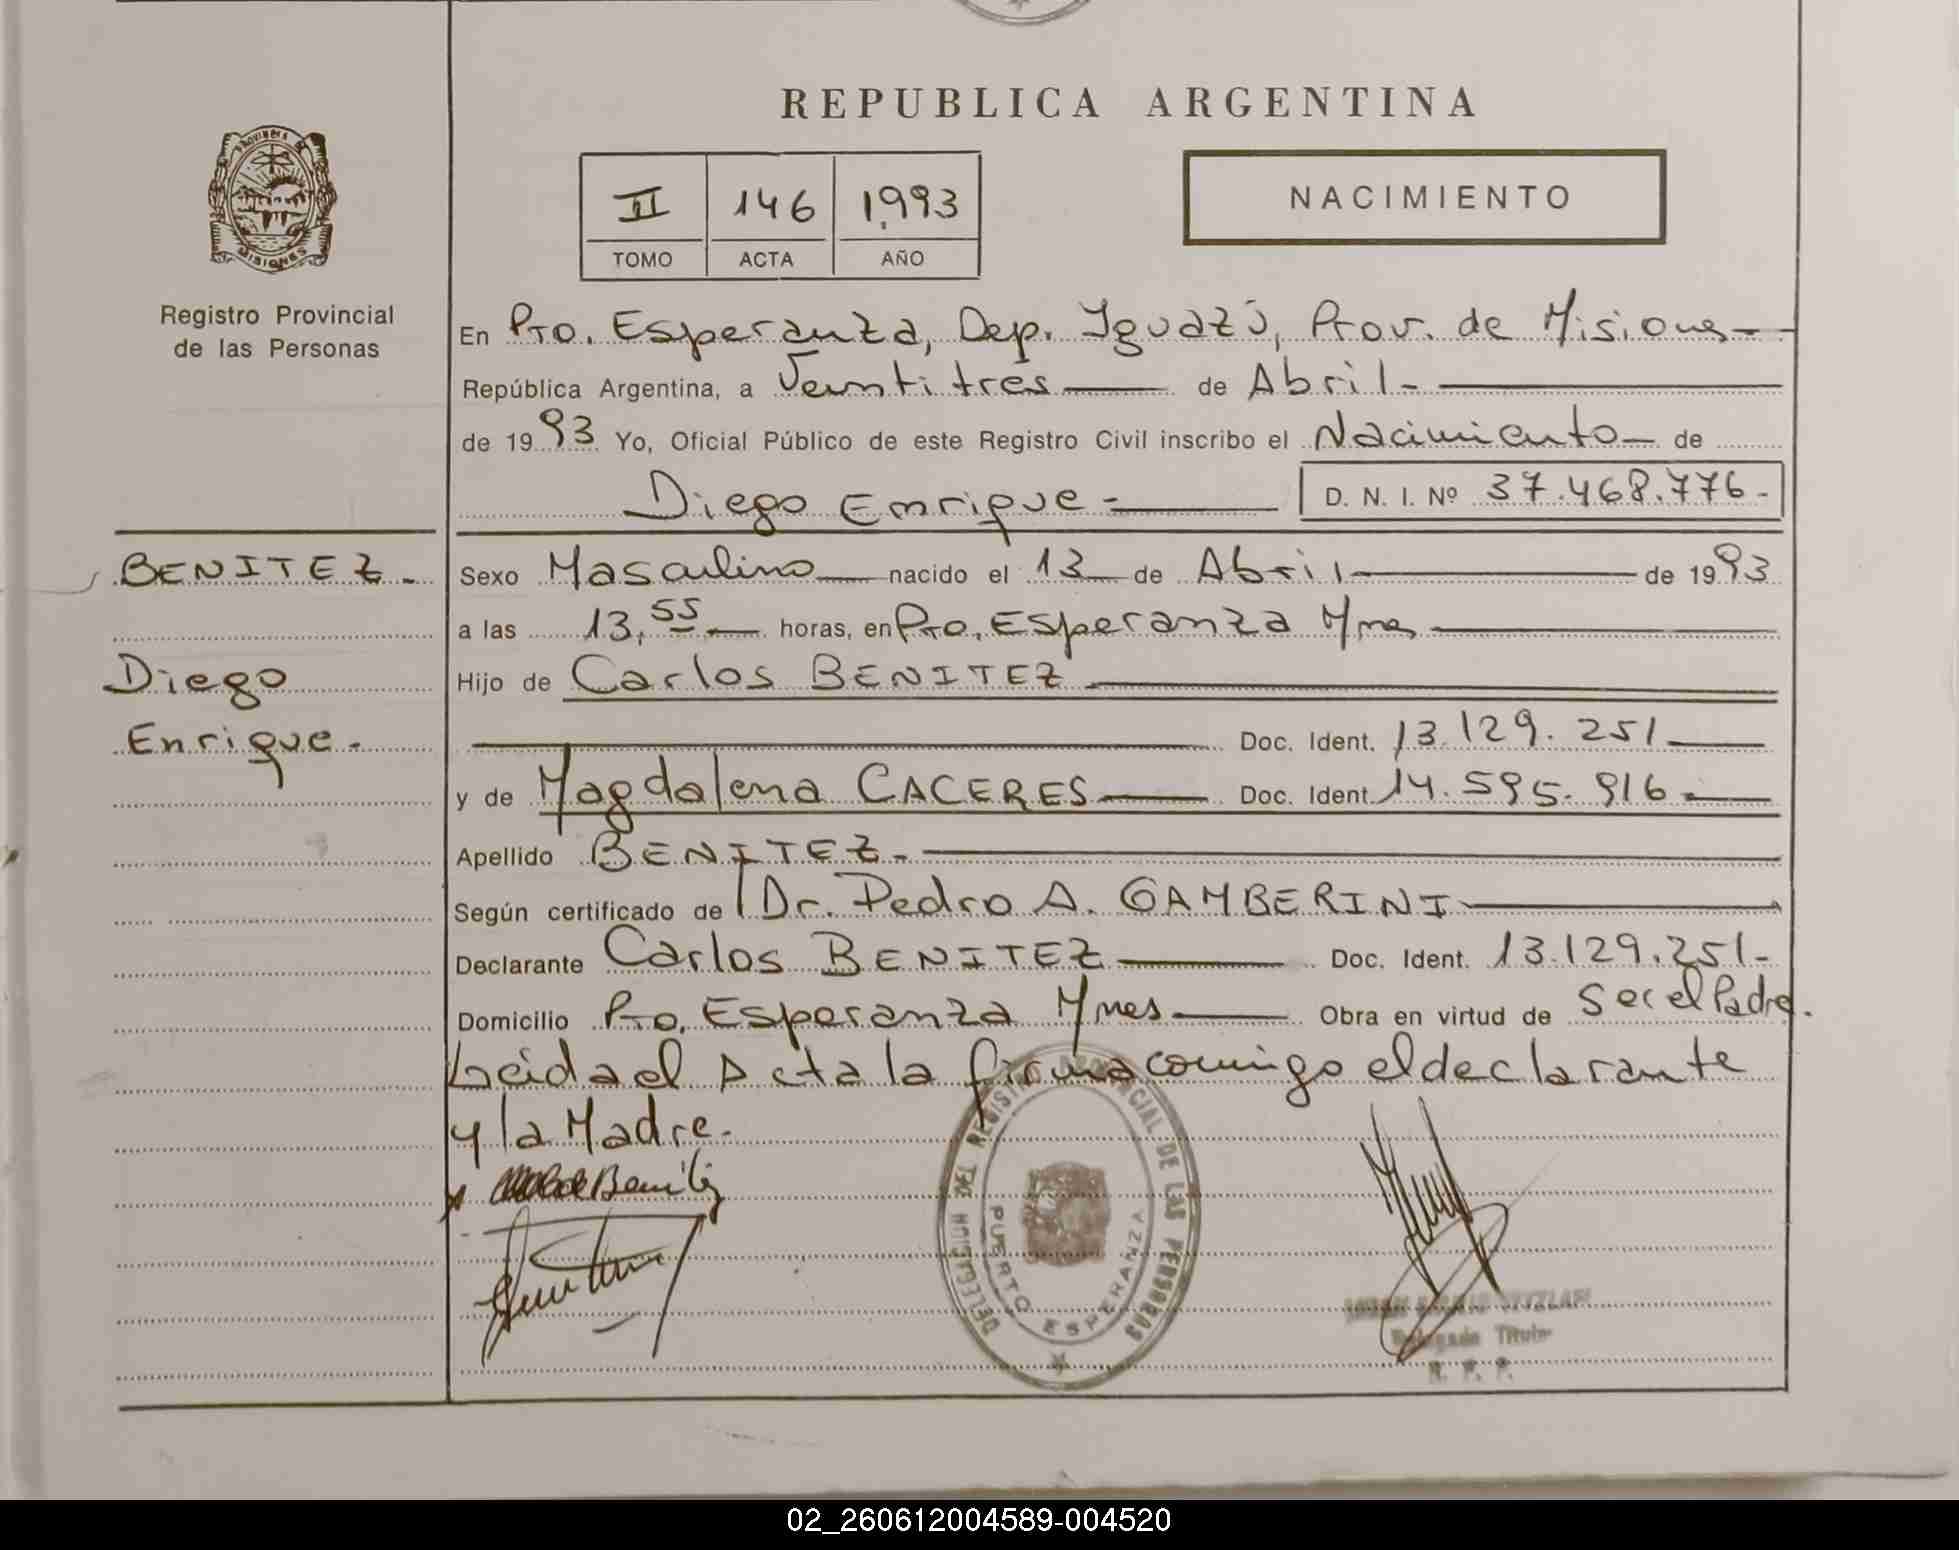 REPUBLICA ARGENTINA
PROVINCIA DE
MISIONES
Registro Provincial
de las Personas
II 146 1993
TOMO ACTA AÑO
NACIMIENTO
En Pto. Esperanza, Dep. Iguazú, Prov. de Misiones
República Argentina, a Veintitres de Abril-
de 1993 Yo, Oficial Público de este Registro Civil inscribo el Nacimiento de
Diego Enrique- D. N. I. Nº 37.468.776-
BENITEZ-
Diego
Enrique.-
Sexo Masculino nacido el 13 de Abril de 1993
a las 13,55 horas, en Pto. Esperanza Mnes
Hijo de Carlos BENITEZ
Doc. Ident. 13.129.251
y de Magdalena CACERES Doc. Ident. 14.595.916-
Apellido BENITEZ-
Según certificado de Dr. Pedro A. GAMBERINI
Declarante Carlos BENITEZ Doc. Ident. 13.129.251-
Domicilio Pto. Esperanza Mnes Obra en virtud de Ser el Padre.
Leida el Acta la firma comigo el declarante
y la Madre.-
de Benitez
DELEGACION DEL REGISTRO PROVINCIAL DE LAS PERSONAS
PUERTO ESPERANZA
Delegado Titular
R. P. P.
02_260612004589-004520